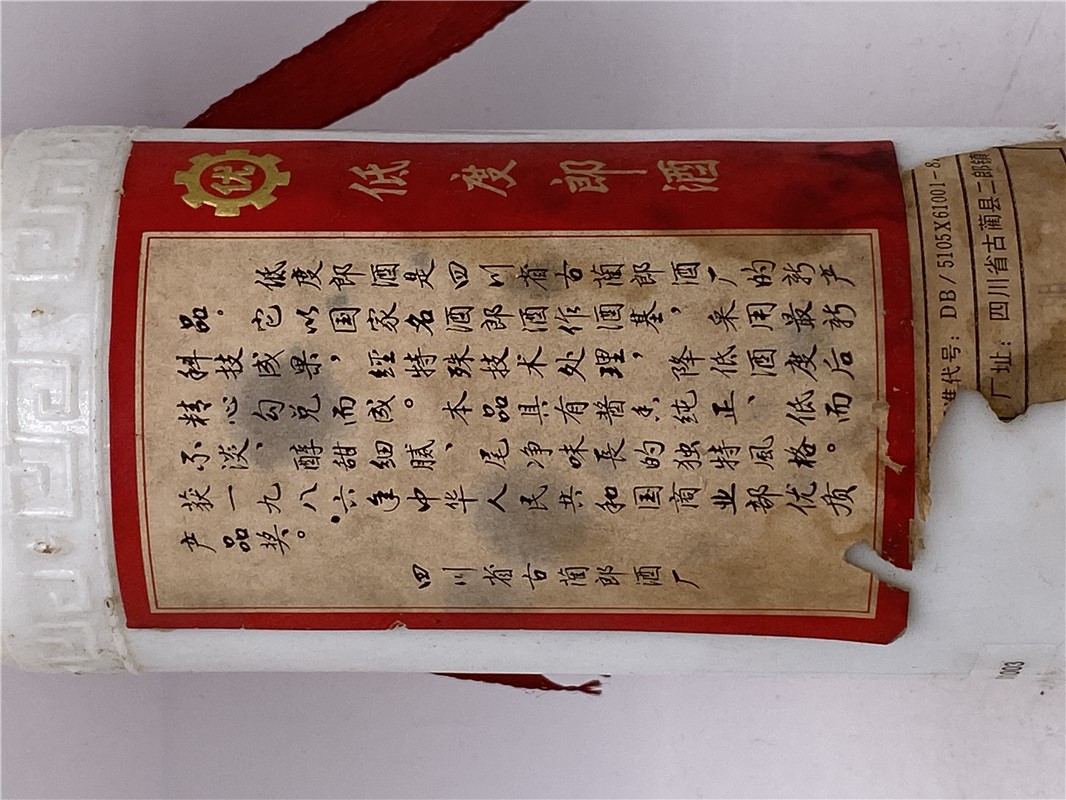 优
低度郎酒
低度郎酒是四川省古蔺郎酒厂的新产
品。它以国家名酒郎酒作酒基，采用最新
科技成果，經特殊技术处理，降低酒度后
精心勾兑而成。本品具有醬香纯正、低而
不淡、醇甜细腻、尾净味長的独特风格。
获一九八六年中华人民共和国商业部优质
产品奖。
四川省古蔺郎酒厂
准代号：DB/5105X61001-8
厂址：四川省古蔺县二郎镇